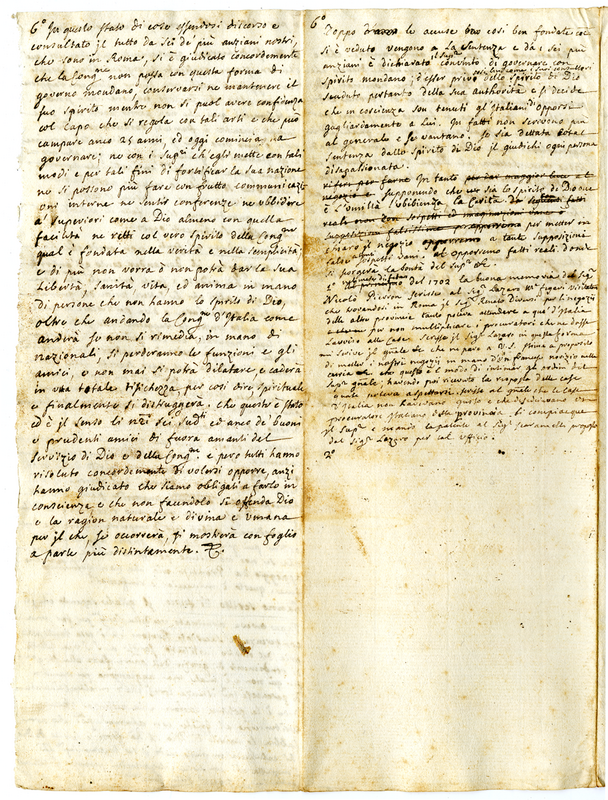 6º In questo stato di cose essendosi discorso e
consultato il tutto da sei de più anziani nostri,
che sono in Roma, si è giudicato concordemente
che la Congne non possa con questa forma di
governo mondano, conservarsi ne mantenere il
suo spirito mentre non si può aver confidenza
col Capo che si regola con tali arti e che può
campare anco 25 anni, ed oggi comincia a
governare; ne con i Supri ch'egli mette con tali
modi e per tali fini di fortificar la sua nazione
ne si possono più fare con frutto communicazi
oni interne ne sentir conferenze ne ubbidire
a' superiori come a Dio almeno con quella
facilità ne retti col vero spirito della Congne
qual è fondata nella verità e nella semplicità
e di più non vorrà o non potrà dar la sua
libertà, sanità vita, ed anima in mano
di persone che non hanno lo spirito di Dio,
oltre che andando la Congne d'Italia come
anderà se non si rimedia, in mano di
nazionali, si perderanno le funzioni e gli
amici, e non mai si potrà dilatare, e caderà
in una totale tisichezza per così dire spirituale
e finalmente si distruggerà. che questo è stato
ed è il senso di sei sudti ed anco de buoni
e prudenti amici di fuora amanti del
servizio di Dio e della Congne e però tutti hanno
risoluto concordemente di volersi opporre, anzi
hanno giudicato che siamo obligati a farlo in
conscienza e che non facendolo si offenda Dio
e la ragion naturale e divina e umana
per il che, se occorrerà, si mostrerà con foglio
a parte più distintamente.
6º
Doppo le accuse così ben fondate come
si è veduto vengono a La sentenza e da i sei più
anziani è dichiarato il Supre convinto di governare con
spirito mondano, d'esser privo dello spirito di Dio
scaduto pertanto della sua authorità e si decide
che in coscienza son tenuti gl'Italiani d'opporsi
gagliardamente a lui. In fatti non scrivono più
al generale e se vantano. Se sia dettata total
sentenza dallo spirito di Dio il giudichi ogni persona
disapassionata.
In tanto
supponendo che sia lo spirito di Dio ove
è l'umiltà l'ubbidienza la carità
per metter in
chiaro il negozio a tante supposizioni
false e sospetti vani al opporremo fatti reali donde
si scorgerà la bontà del Supre
1º del 1702 la buona memoria del Sigr
Nicolò Pierron scrisse al Sigr Lazaro Ma Figari visitatore
che trovandosi in Roma il Sigr Renato Divers per li negozj
delle altre provincie tanto poteva attendere a que' d'Italia
per non multiplicare i procuratori che ne dasse
l'avviso alle Case. scrisse il Sigr Lazaro in questa forma
mi scrive il Sigr generale che ne pare a V.S. stima a proposito
di metter i nostri negozj in mano d'un francese notizia nella
che questo è il modo di intimar gli ordini del
Supre generale; havendo poi ricevuto la risposta delle case
d'Italia non poteva aspettarsi. scrisse al generale che le case
procuratore Italiano della provincia. si compiacque
il Supre e mandò la patente al Sigr Scaramelli proposto
dal Sigr Lazaro per tal ufficio.
2º